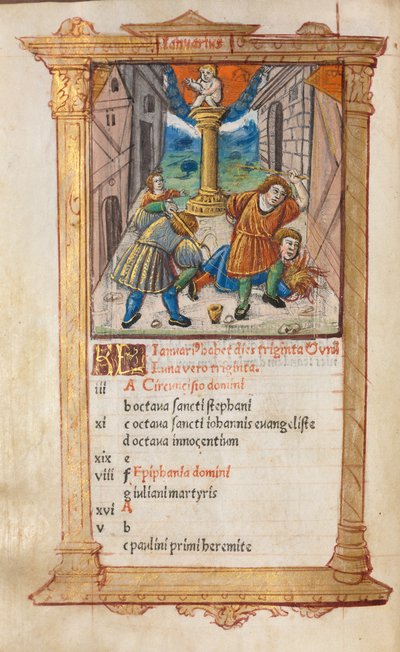 Ianuarius
KL Ianuari⁹ habet dies triginta Vnū
Luna vero triginta.
iii A Circuncisio domini
b octava sancti stephani
xi c octava sancti iohannis evangeliste
d octava innocentium
xix e
viii f Epiphania domini
g iuliani martyris
xvi A
v b
c paulini primi heremite